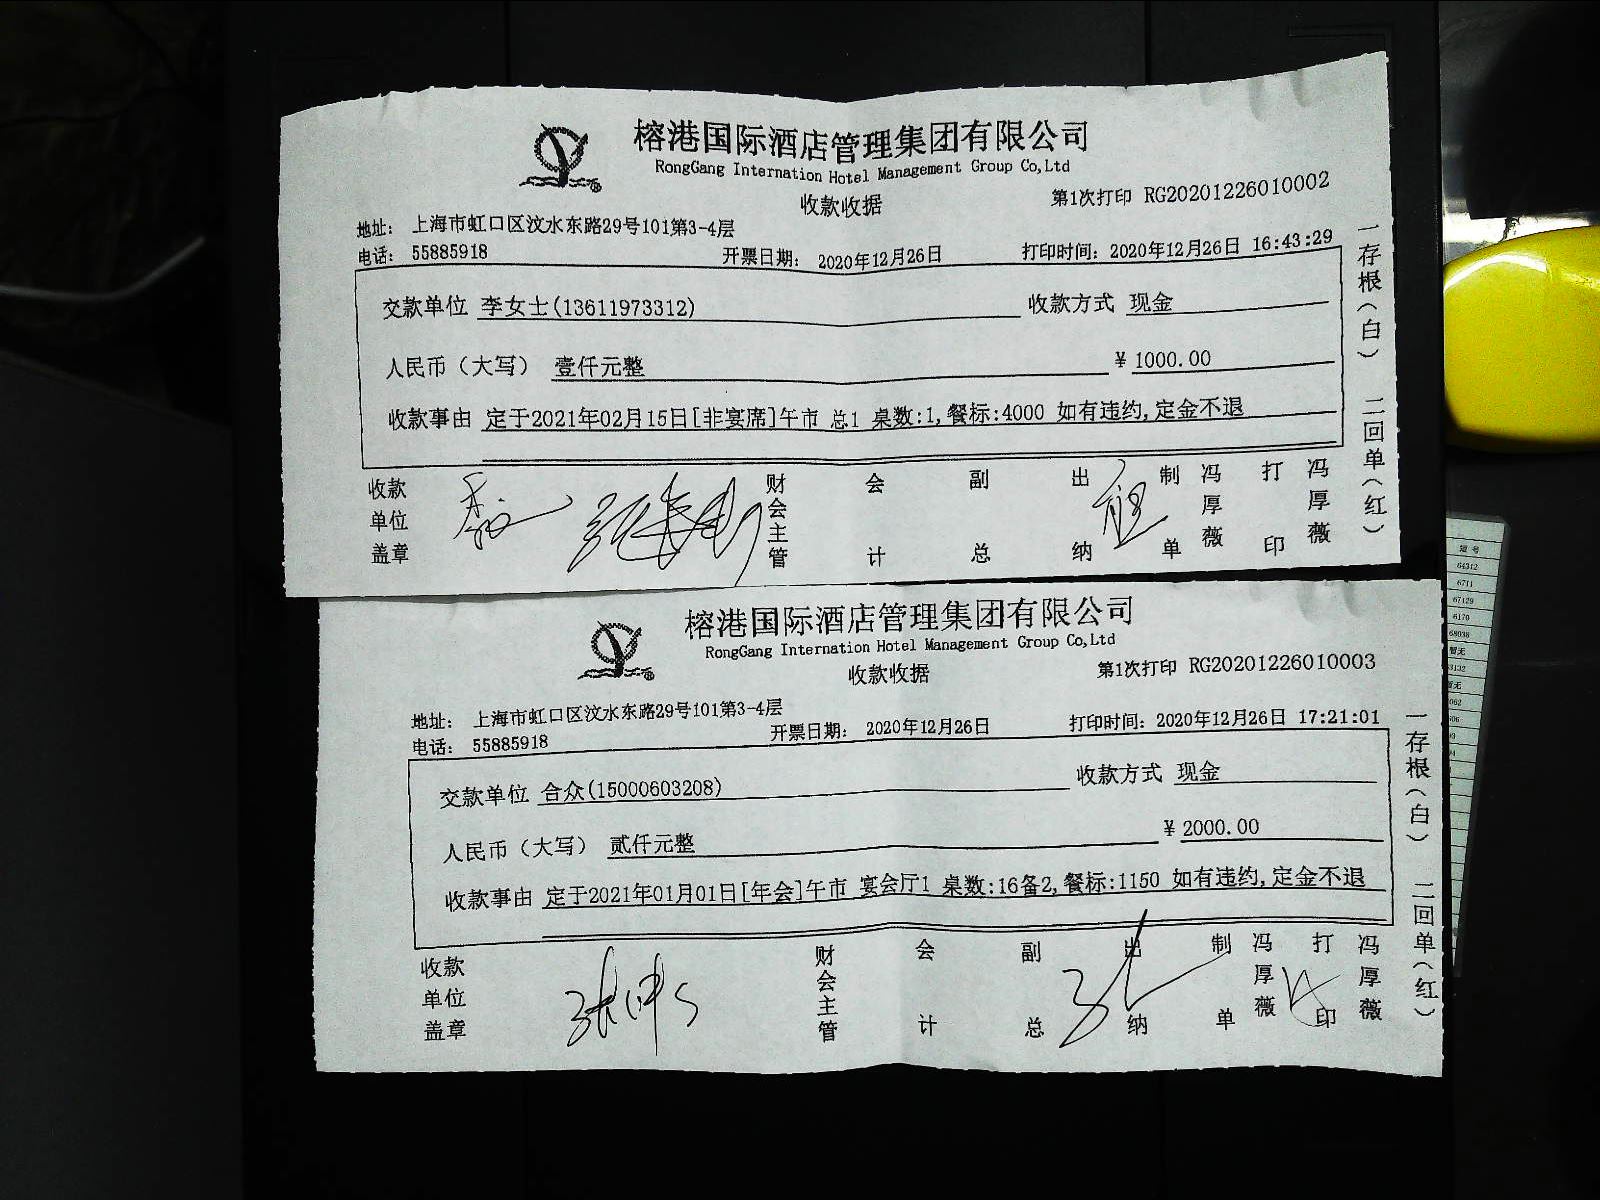 榕港国际酒店管理集团有限公司
RongGang Internation Hotel Management Group Co,Ltd
收款收据
第1次打印 RG20201226010002
地址: 上海市虹口区汶水东路29号101第3-4层
电话: 55885918 开票日期: 2020年12月26日 打印时间: 2020年12月26日 16:43:29
交款单位 李女士(13611973312) 收款方式 现金
人民币(大写) 壹仟元整 ¥ 1000.00
收款事由 定于2021年02月15日[非宴席]午市 总1 桌数:1,餐标:4000 如有违约,定金不退
收款单位盖章 财会主管 会计 副总 出纳 制单 冯厚薇 打印 冯厚薇
一存根(白) 二回单(红)
榕港国际酒店管理集团有限公司
RongGang Internation Hotel Management Group Co,Ltd
收款收据
第1次打印 RG20201226010003
地址: 上海市虹口区汶水东路29号101第3-4层
电话: 55885918 开票日期: 2020年12月26日 打印时间: 2020年12月26日 17:21:01
交款单位 合众(15000603208) 收款方式 现金
人民币(大写) 贰仟元整 ¥ 2000.00
收款事由 定于2021年01月01日[年会]午市 宴会厅1 桌数:16备2,餐标:1150 如有违约,定金不退
收款单位盖章 财会主管 会计 副总 出纳 制单 冯厚薇 打印 冯厚薇
一存根(白) 二回单(红)
短号
64312
6711
67129
6170
68038
暂无